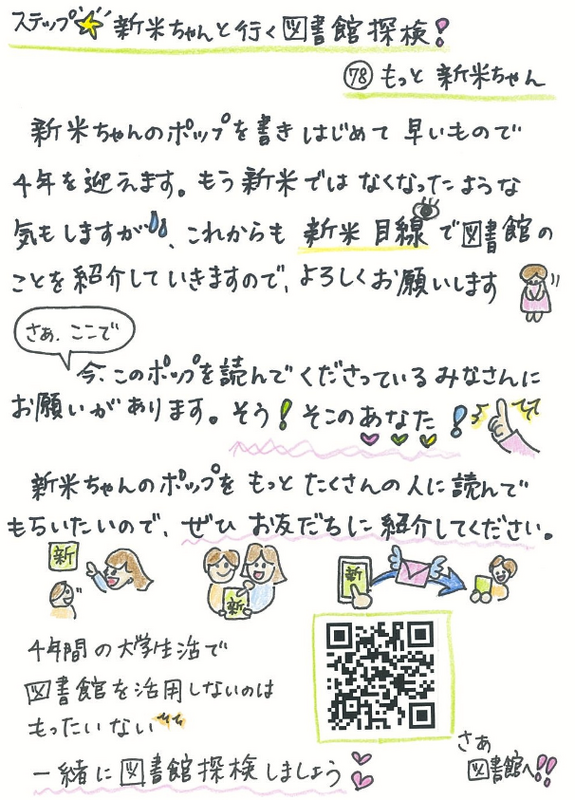 ステップ 新米ちゃんと行く図書館探検!
78 もっと 新米ちゃん
新米ちゃんのポップを書きはじめて 早いもので
4年を迎えます。もう新米では なくなったような
気もしますが、これからも 新米 目線で図書館の
ことを紹介していきますので、よろしくお願いします
さぁ、ここで
今、このポップを読んでくださっている みなさんに
お願いがあります。そう! そこのあなた!
新米ちゃんのポップを もっと たくさんの人に 読んで
もらいたいので、ぜひ お友だちに 紹介してください。
新
新
新
4年間の大学生活で
図書館を活用しないのは
もったいない
一緒に図書館探検しましょう
さあ
図書館へ!!